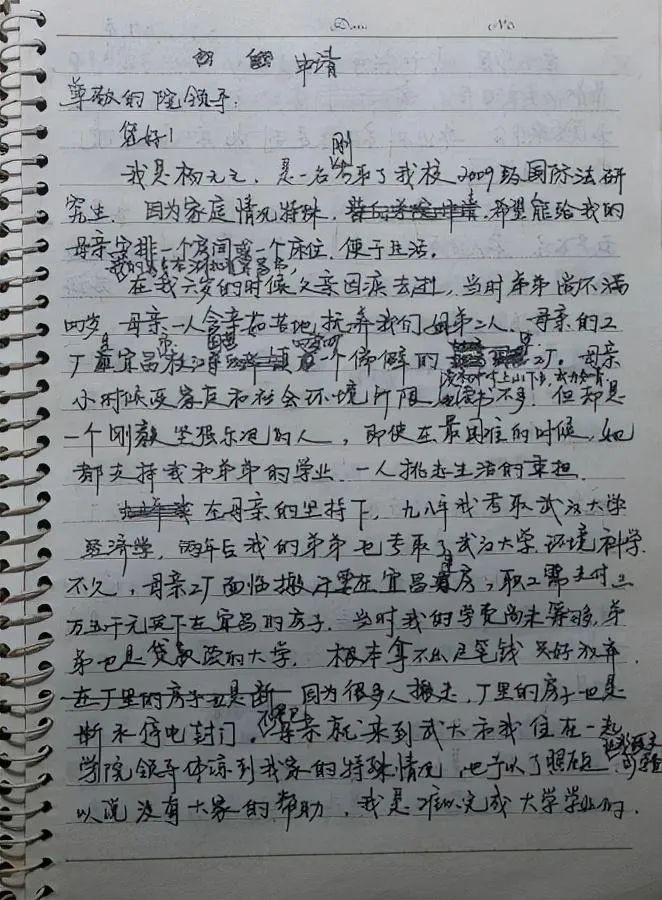 Date No
申请
尊敬的院领导:
您好!
刚
我是杨元元,是一名考取了我校2009级国际法研
究生。因为家庭情况特殊,希望能给我的
母亲安排一个房间或一个床位,便于生活。
在我六岁的时候父亲因病去逝,当时弟弟尚不满
四岁,母亲一人含辛如苦地抚养我们姐弟二人。母亲的工
厂是宜昌市枝江 一个偏僻的 工厂。母亲
小时候受家庭和社会环境所限,读书不多,但却是
一个刚毅坚强乐观的人,即使在最困难的时候,她
都支持我和弟弟的学业,一人挑起生活的重担。
在母亲的坚持下,九八年我考取武汉大学
经济学,两年后我的弟弟也考取了武汉大学环境科学。
不久,母亲工厂面临搬迁要在宜昌 房,职工需支付三
万五千元买下在宜昌的房子。当时我的学费尚未筹够,弟
弟也是贷款读的大学,根本拿不出这笔钱只好放弃。
因为很多人搬走,厂里的房子也是
断水停电封门。不得已
母亲就来到武大和我住在一起
学院领导体谅到我家的特殊情况,也予以了照顾。可
以说没有大家的帮助,我是难以完成大学学业的。